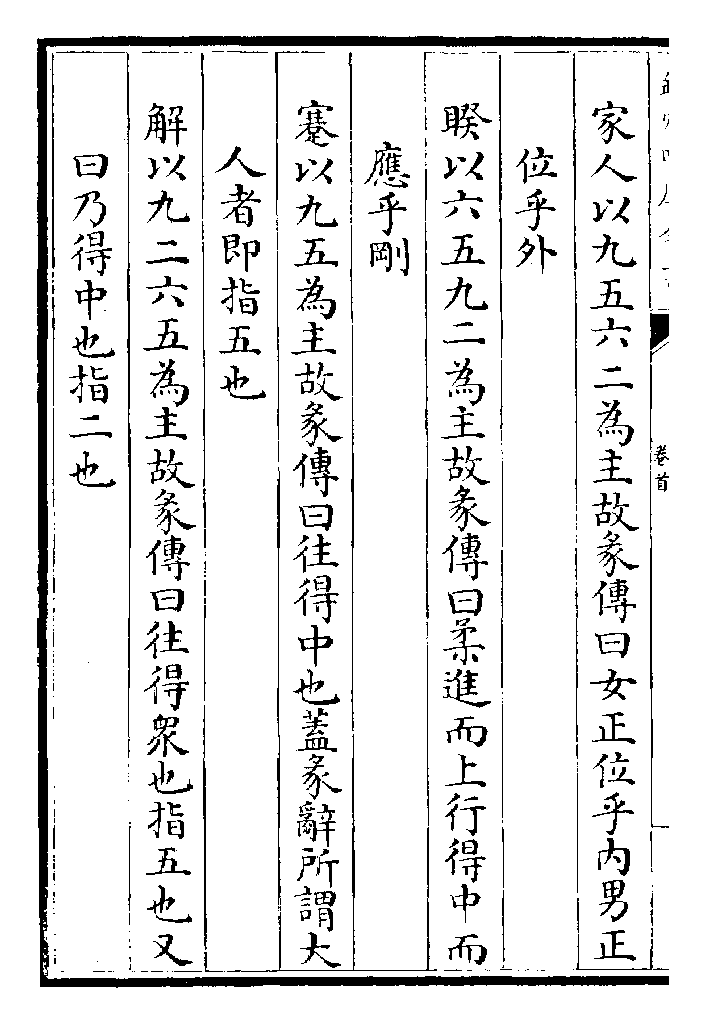 卷首
家人以九五六二為主故彖傳曰女正位乎內男正
位乎外
睽以六五九二為主故彖傳曰柔進而上行得中而
應乎剛
蹇以九五為主故彖傳曰往得中也蓋彖辭所謂大
人者即指五也
解以九二六五為主故彖傳曰往得衆也指五也又
曰乃得中也指二也